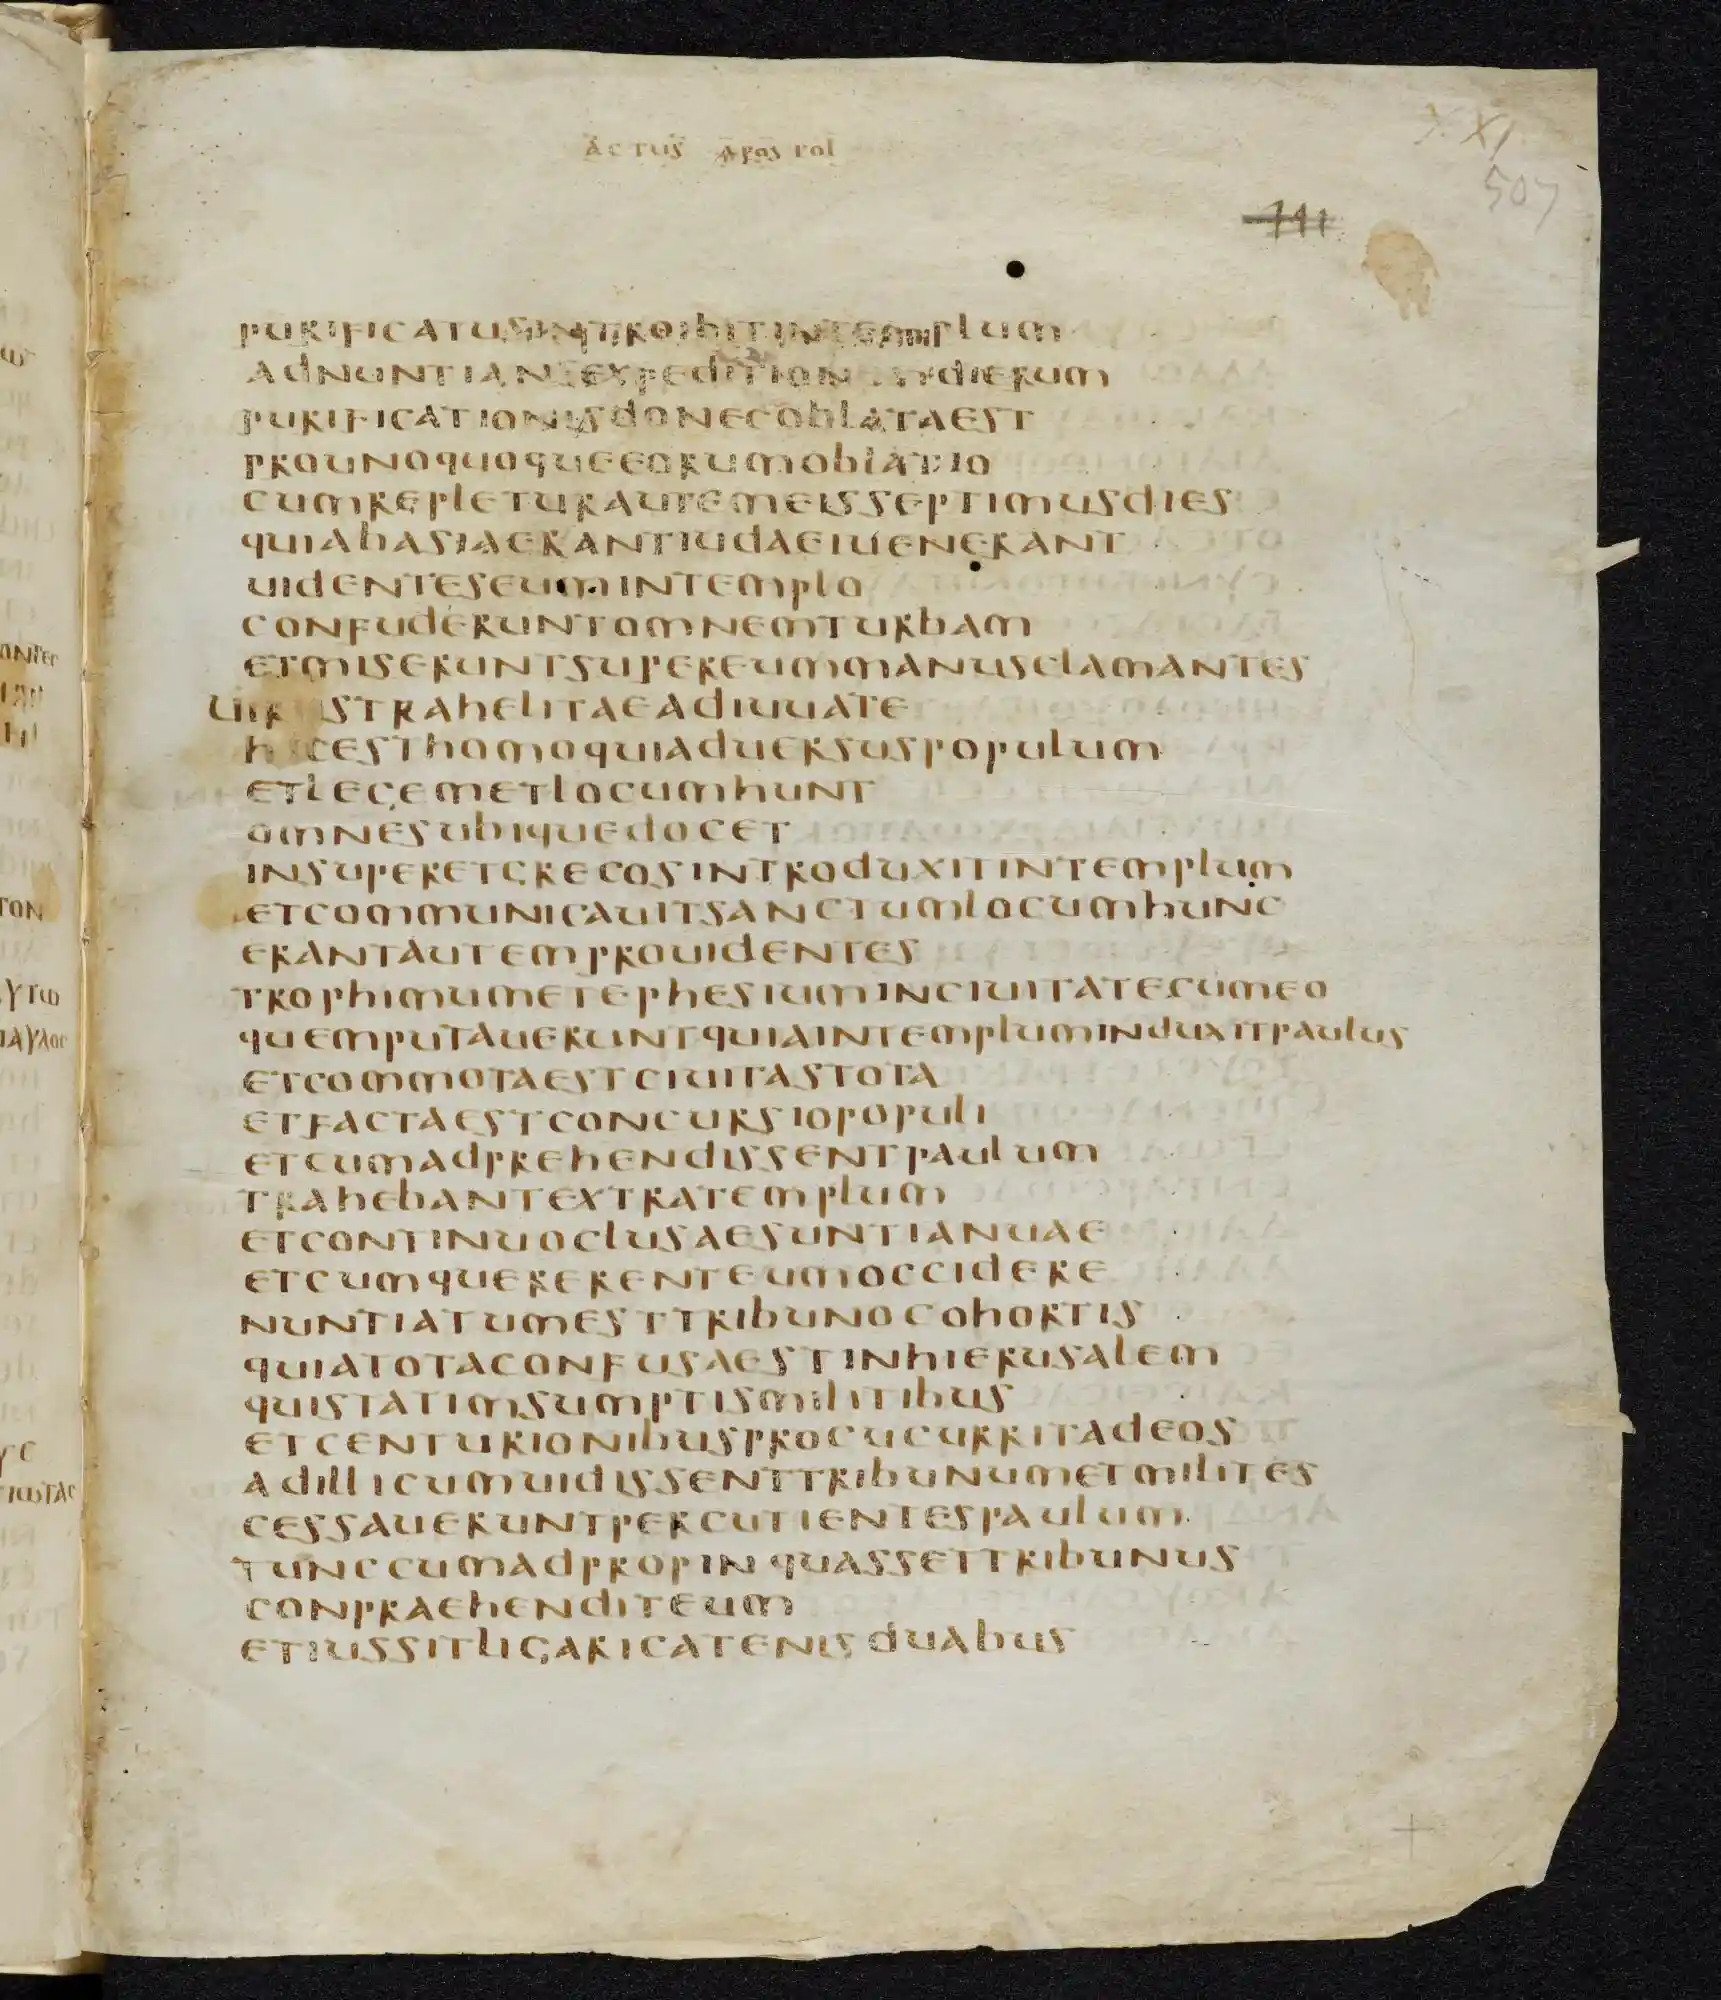 ACTUS APOSTOL
XXI
507
PURIFICATUSINTROIBITINTEMPLUM
ADNUNTIANSEXPEDITIONEMDIERUM
PURIFICATIONISDONECOBLATAEST
PROUNOQUOQUEEORUMOBLATIO
CUMREPLETURAUTEMEISSEPTIMUSDIES
QUIABASIAERANTIUDAEIUENERANT
UIDENTESEUMINTEMPLO
CONFUDERUNTOMNEMTURBAM
ETMISERUNTSUPEREUMMANUSCLAMANTES
UIRIISTRAHELITAEADIUUATE
HICESTHOMOQUIADUERSUSPOPULUM
ETLEGEMETLOCUMHUNT
OMNESUBIQUEDOCET
INSUPERETGRECOSINTRODUXITINTEMPLUM
ETCOMMUNICAUITSANCTUMLOCUMHUNC
ERANTAUTEMPROUIDENTES
TROPHIMUMETEPHESIUMINCIUITATECUMEO
QUEMPUTAUERUNTQUIAINTEMPLUMINDUXITPAULUS
ETCOMMOTAESTCIUITASTOTA
ETFACTAESTCONCURSIOPOPULI
ETCUMADPREHENDISSENTPAULUM
TRAHEBANTEXTRATEMPLUM
ETCONTINUOCLUSAESUNTIANUAE
ETCUMQUERERENTEUMOCCIDERE
NUNTIATUMESTTRIBUNOCOHORTIS
QUIATOTACONFUSAESTINHIERUSALEM
QUISTATIMSUMPTISMILITIBUS
ETCENTURIONIBUSPROCUCURRITADEOS
ADILLICUMUIDISSENTTRIBUNUMETMILITES
CESSAUERUNTPERCUTIENTESPAULUM
TUNCCUMADPROPINQUASSETTRIBUNUS
CONPRAEHENDITEUM
ETIUSSITLIGARICATENISDUABUS